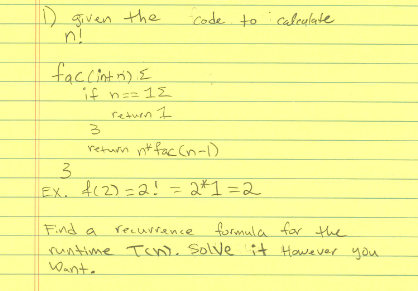 1) given the code to calculate
n!
fac(int n) {
if n == 1 {
return 1
}
return n*fac(n-1)
}
EX. f(2) = 2! = 2*1 = 2
Find a recurrence formula for the
runtime T(n). Solve it However you
Want.